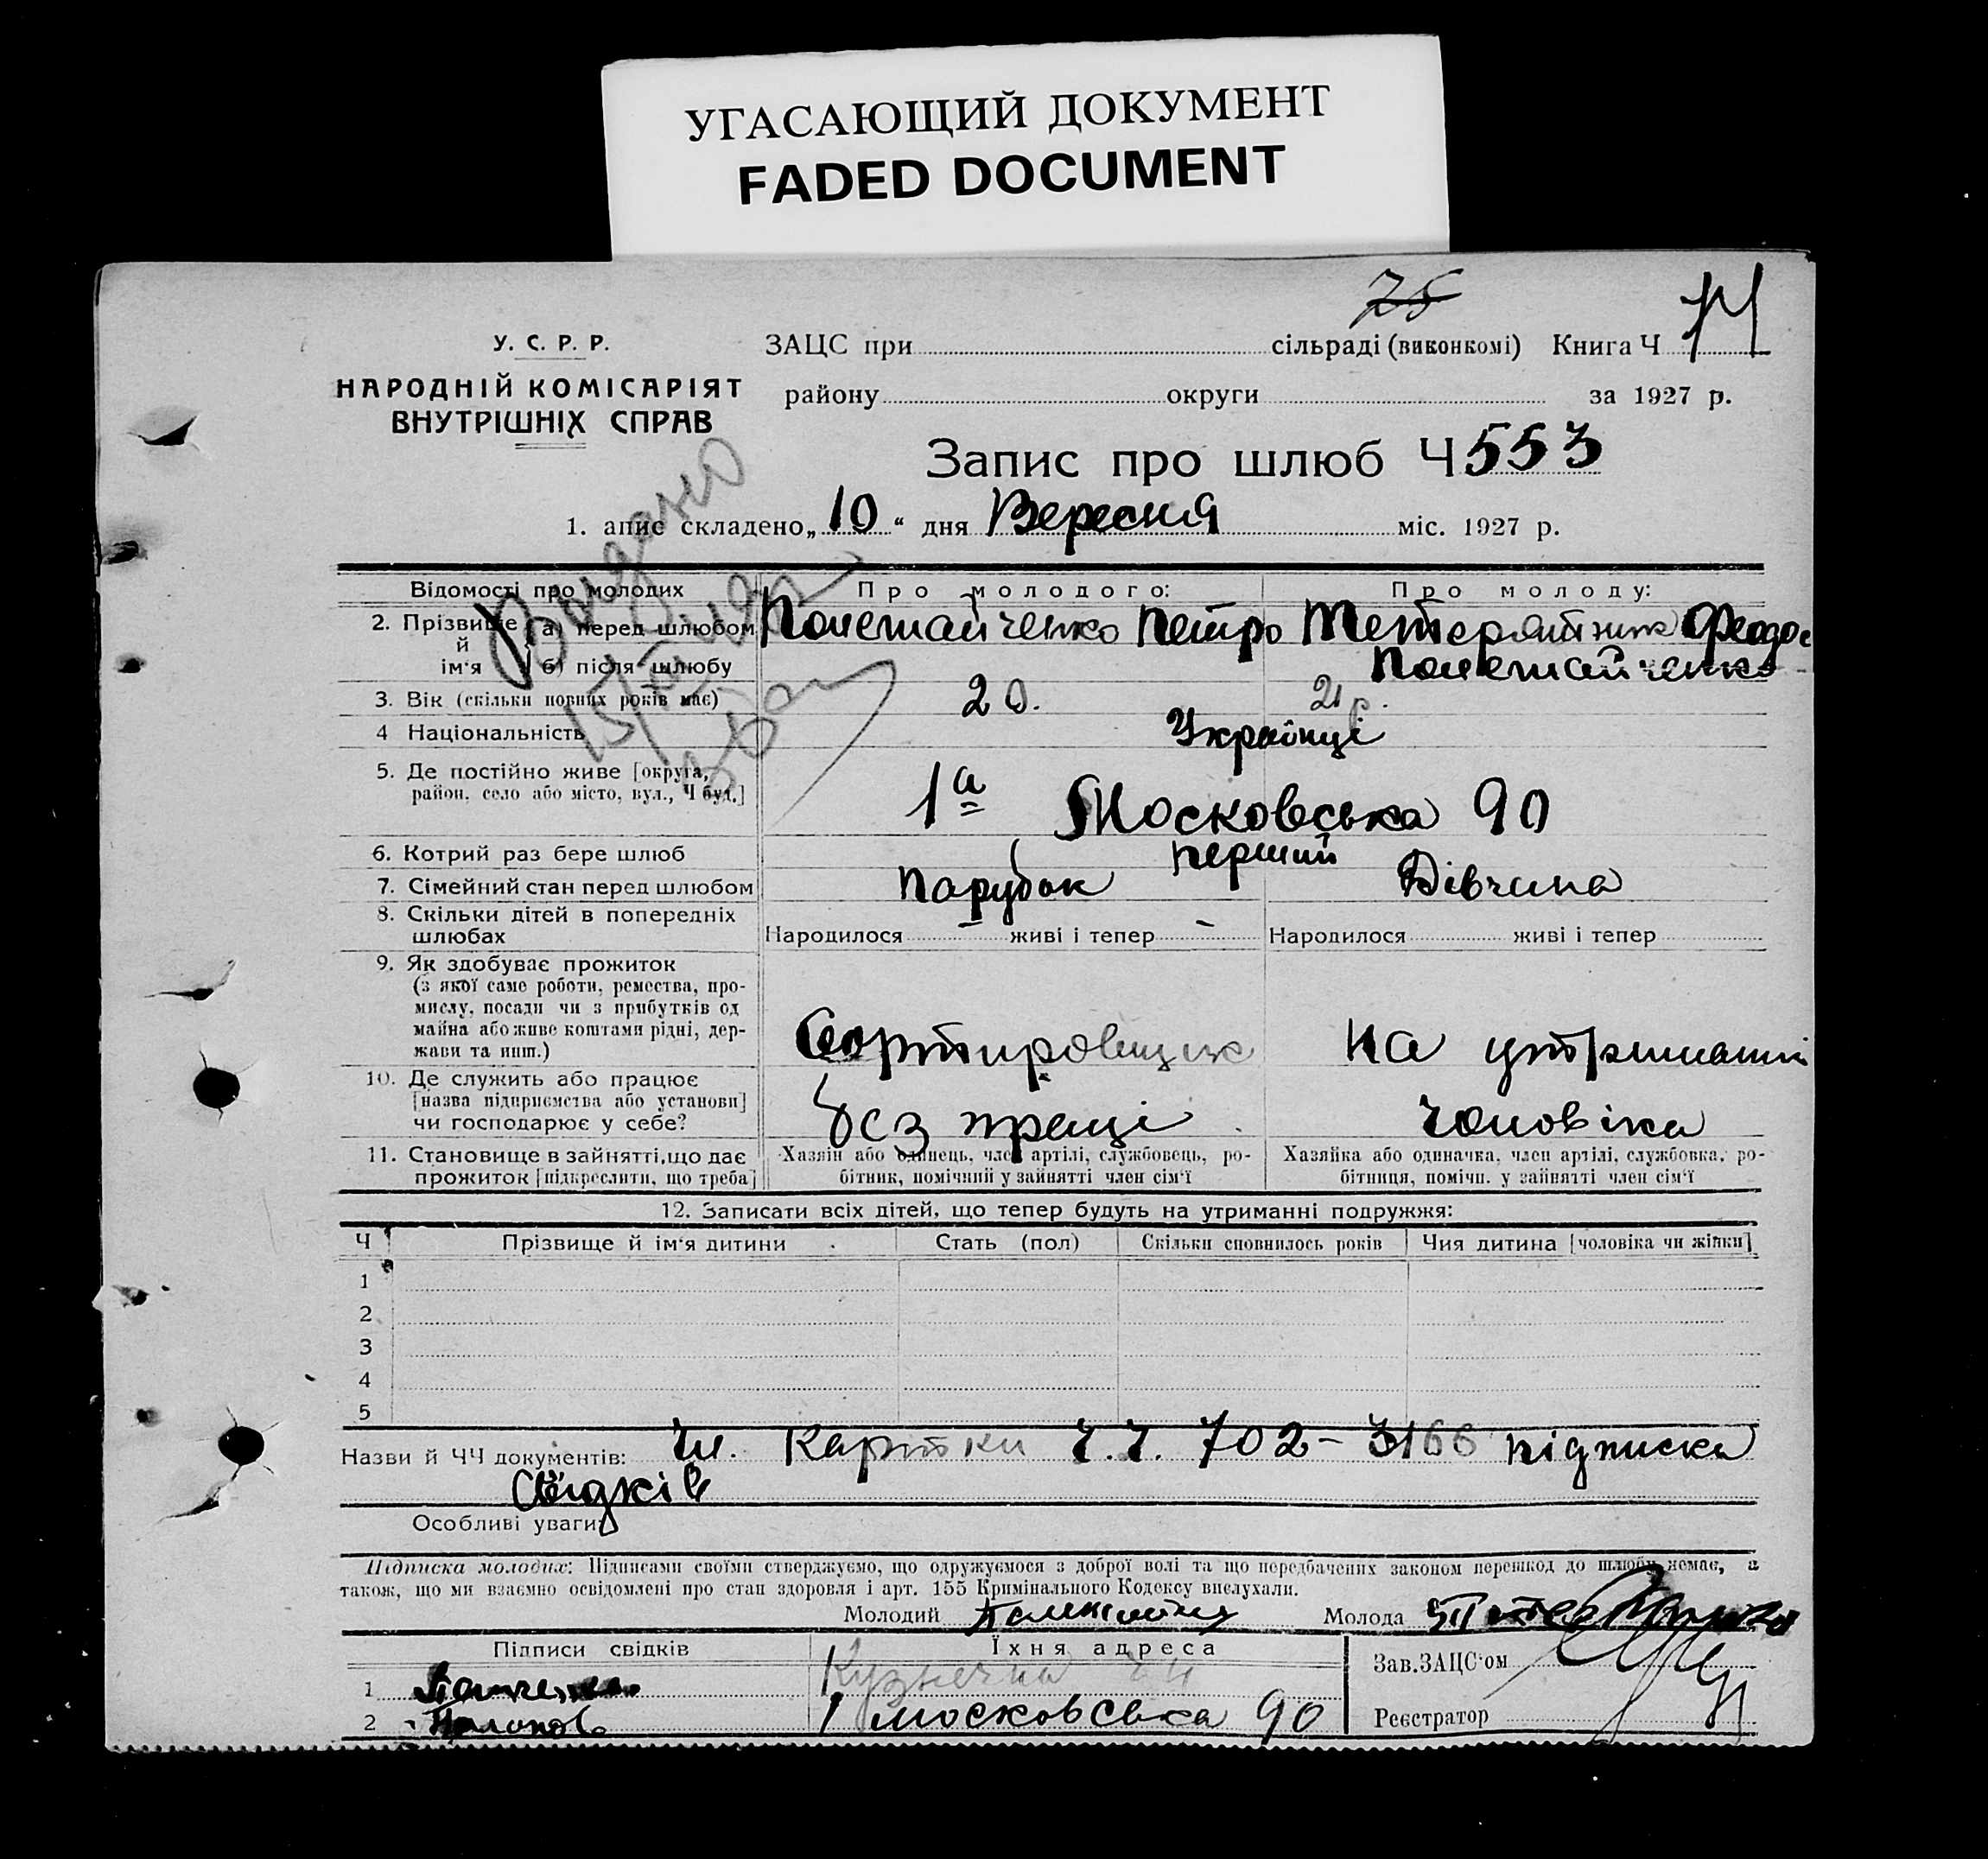 УГАСАЮЩИЙ ДОКУМЕНТ
FADED DOCUMENT
75
У. С. Р. Р.
НАРОДНІЙ КОМІСАРІЯТ
ВНУТРІШНІХ СПРАВ
ЗАЦС при сільраді (виконкомі) Книга Ч
району округи за 1927 р.
Запис про шлюб Ч 553
1. апис складено „10“ дня Вересня міс. 1927 р.
Видано
Відомості про молодих
Про молодого:
Про молоду:
2. Прізвище й ім'я
а) перед шлюбом
Полетайченко Петро
Феодос
б) після шлюбу
Полетайченко
3. Вік (скільки повних років має)
20.
21 р.
4 Національність
Українці
5. Де постійно живе [округа,
район, село або місто, вул., Ч буд.]
1а Московська 90
6. Котрий раз бере шлюб
перший
7. Сімейний стан перед шлюбом
Парубок
Дівчина
8. Скільки дітей в попередніх
шлюбах
Народилося - живі і тепер -
Народилося живі і тепер
9. Як здобуває прожиток
(з якої саме роботи, ремества, про-
мислу, посади чи з прибутків од
майна або живе коштами рідні, дер-
жави та инш.)
Сортировщик
На утриманні
10. Де служить або працює
[назва підприємства або установи]
чи господарює у себе?
без праці
чоловіка
11. Становище в зайнятті, що дає
прожиток [підкреслити, що треба]
Хазяїн або одинець, член артілі, службовець, ро-
бітник, помічний у зайнятті член сім'ї
Хазяйка або одиначка, член артілі, службовка, ро-
бітниця, помічн. у зайнятті член сім'ї
12. Записати всіх дітей, що тепер будуть на утриманні подружжя:
Ч Прізвище й ім'я дитини Стать (пол) Скільки сповнилось років Чия дитина [чоловіка чи жінки]
1
2
3
4
5
Назви й ЧЧ документів: Чл. Картки Ч.Ч. 702 - 3166 підписка
Свідків
Особливі уваги:
Підписка молодих: Підписами своїми стверджуємо, що одружуємося з доброї волі та що передбачених законом перешкод до шлюбу немає, а
також, що ми взаємно освідомлені про стан здоровля і арт. 155 Кримінального Кодексу вислухали.
Молодий
Молода
Підписи свідків
Їхня адреса
Зав. ЗАЦС'ом
1
Кузнечна
2
1 Московська 90
Реєстратор